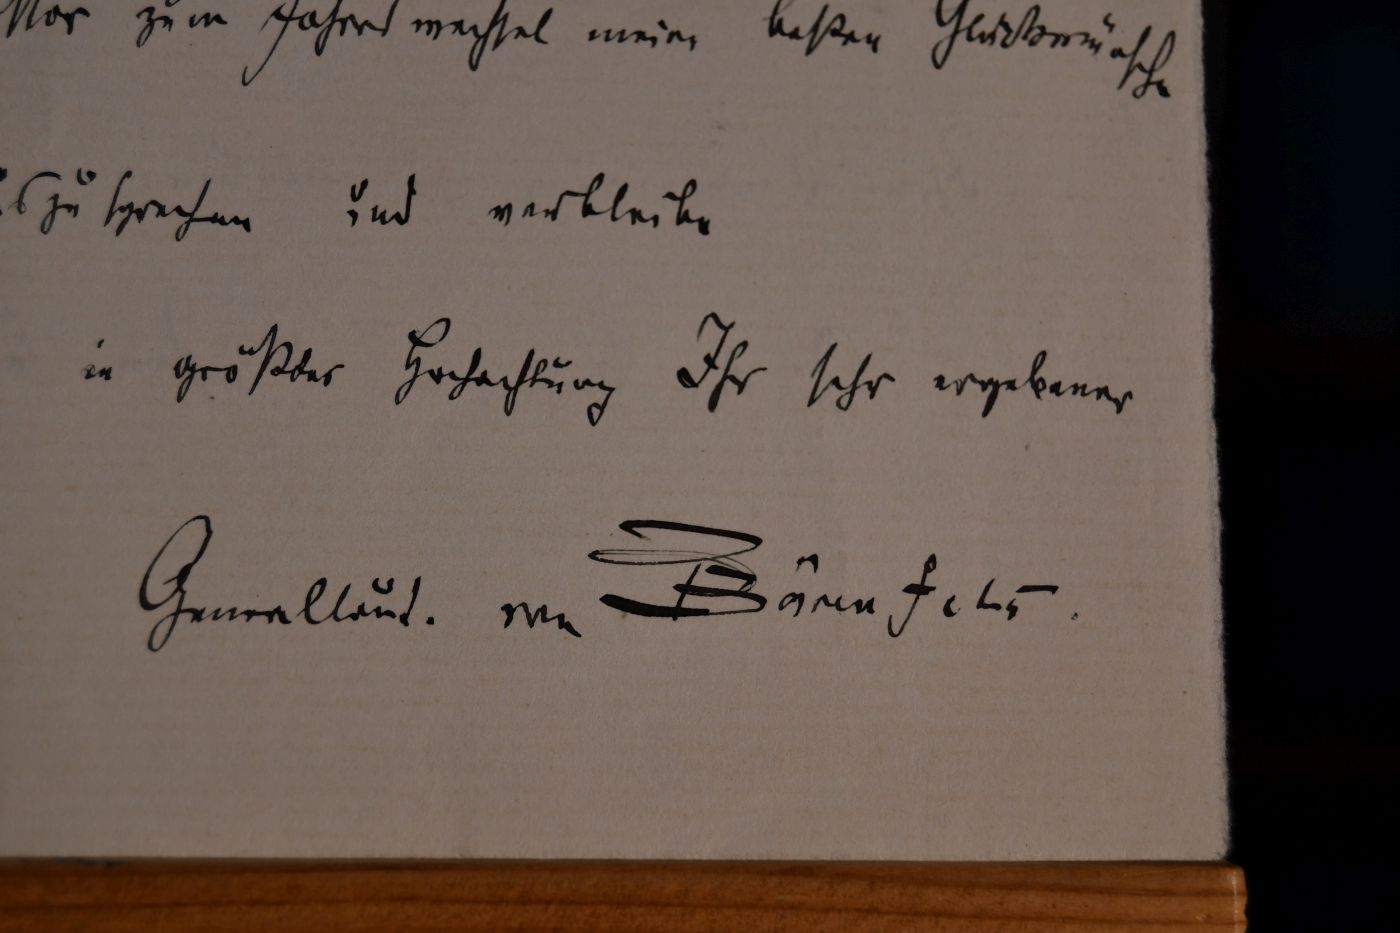 zum Jahreswechsel meine besten Glückwünsche
szusprechen und verbleibe
in größter Hochachtung Ihr sehr ergebener
Generalleut. von Bärenfels.